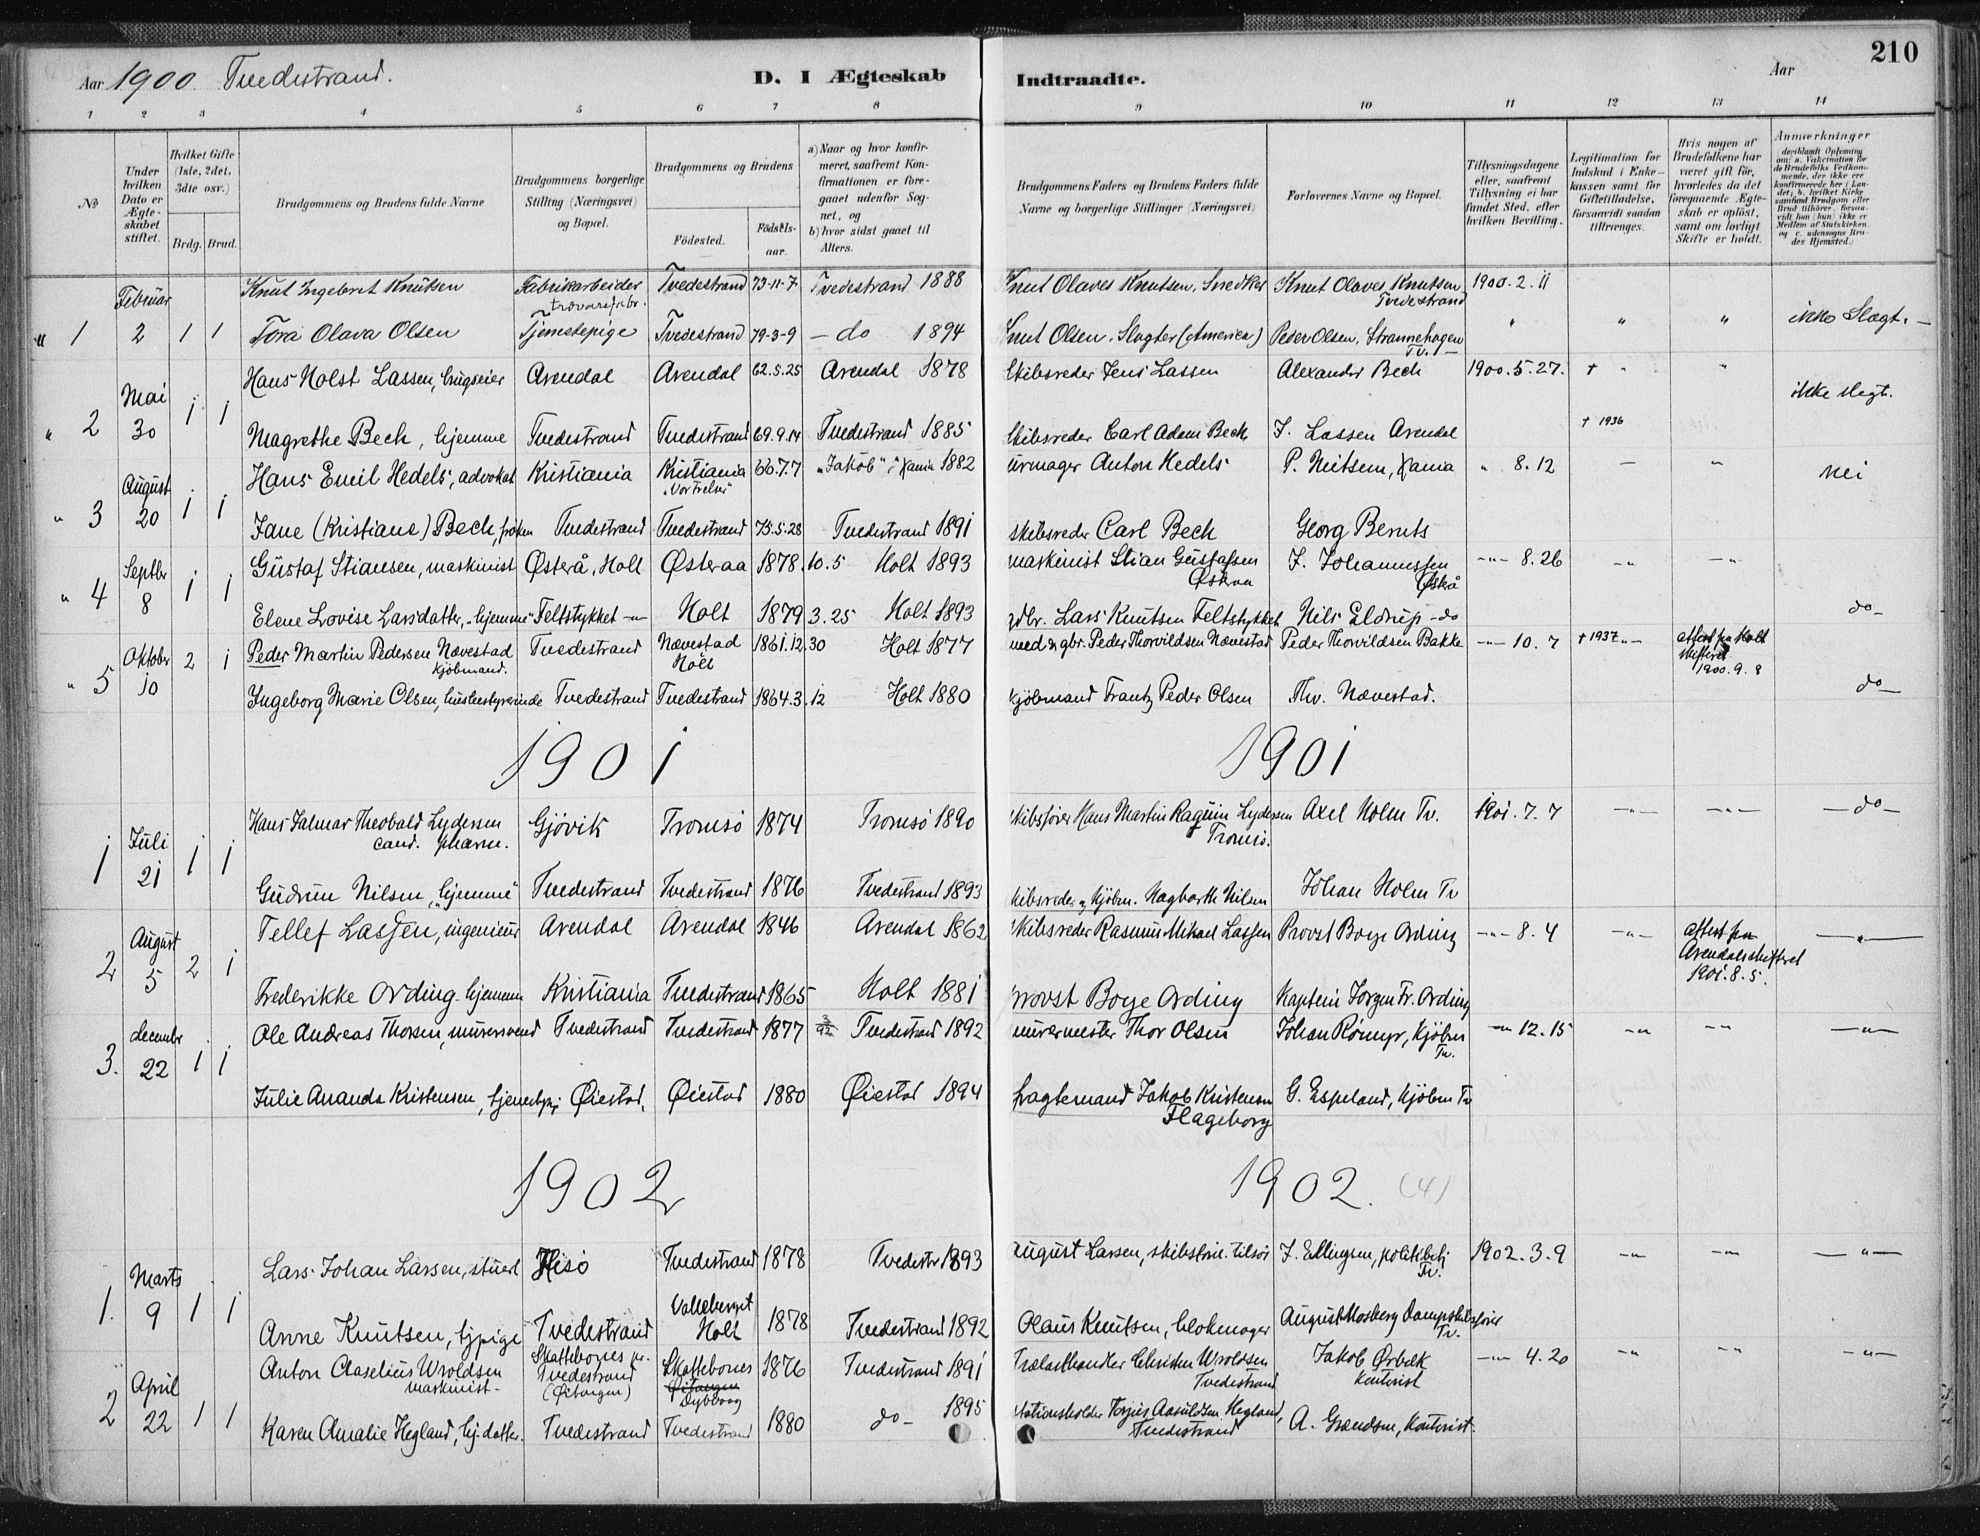 210
Aar 1900. Tvedestrand. D. I Ægteskab Indtraadte. Aar
1 2 3 4 5 6 7 8 9 10 11 12 13 14
No
Under hvilken Dato er Ægteskabet stiftet.
Hvilket Gifte (1ste, 2det, 3die osv.)
Brdg. Brud.
Brudgommens og Brudens fulde Navne
Brudgommens borgerlige Stilling (Næringsvei) og Bopæl.
Brudgommens og Brudens
Fødested. Fødselsaar.
a) Naar og hvor konfirmeret, saafremt Konfirmationen er foregaaet udenfor Sognet, og
b) hvor sidst gaaet til Alters.
Brudgommens Faders og Brudens Faders fulde Navne og borgerlige Stillinger (Næringsvei)
Forlovernes Navne og Bopæl.
Tillysningsdagene eller, saafremt Tillysning ei har fundet Sted, efter hvilken Bevilling.
Legitimation for Indskud i Enkekassen samt for Giftetilladelse, forsaavidt saadan tiltrænges.
Hvis nogen af Brudefolkene har været gift før, hvorledes da det foregaaende Ægteskab er opløst, samt om lovligt Skifte er holdt.
Anmærkninger deriblandt Oplysning om: a. Vakcination for de Brudefolks Vedkommende, der ikke ere konfirmerede her i Landet; b. hvilket Kirkesamfund Brudgom eller Brud tilhører, forsaavidt han (hun) ikke er Medlem af Statskirken, og c. udensogns Brudes Hjemsted.
Februar Knut Ingebret Knutsen Fabrikarbeider trævarefabr. Tvedestrand 73-11-7 Tvedestrand 1888 Knut Olaves Knutsen, Snedker Knut Olaves Knutsen Tvedestrand 1900.2.11
" 1 2 1 1 Tora Olava Olsen Tjenestepige Tvedestrand 79-3-9 — do 1894 Knut Olsen, Slagter (Amerika) Peder Olsen, Strannehagen Tv. " " " ikke Slægt. —
Mai Hans Holst Lassen, brugseier Arendal Arendal 62.5.25 Arendal 1878 Skibsreder Jens Lassen Alexander Bech 1900.5.27. + " " ikke slegt.
" 2 30 1 1 Magrethe Bech, hjemme Tvedestrand Tvedestrand 69.9.14 Tvedestrand 1885 Skibsreder Carl Adam Bech J. Lassen Arendal † 1936
August Hans Emil Hedels, advokat Kristiania Kristiania "Vor Frelser" 66.7.7 "Jakob" i Kania 1882 urmager Anton Hedels P. Neitsem, Kania " 8.12 — " nei
" 3 20 1 1 Jane (Kristiane) Bech, frøken Tvedestrand Tvedestrand 73.5.28 Tvedestrand 1891 skibsreder Carl Bech Georg Bernts
Septbr Gustaf Stiansen, maskinist Østerå, Holt Østeraa 1878.10.5 Holt 1893 maskinist Stian Gustafsen Østeraa J. Johannessen Østrå -"- 8.26 -"- -"-
" 4 8 1 1 Elene Lovise Larsdatter, "hjemme" Feltstykket -"- Holt 1879 3.25 Holt 1893 gdbr. Lars Knutsen Feltstykket Nils Eldrup - do do-
Oktober Peder Martin Pedersen Nævestad kjøbmand. Tvedestrand Nævestad Holt 1861.12.30 Holt 1877 smed & gbr. Peder Thorvildsen Nævestad Peder Thorvildsen Bakke -"- 10.7 † 1937 -"- attest fra Holt skifteret 1900.9.8
" 5 10 2 1 Ingeborg Marie Olsen, husbestyrerinde Tvedestrand Tvedestrand 1864.3.12 Holt 1880 Kjøbmand Frantz Peder Olsen Thv. Nævestad. do —
1901 1901
Juli Hans Jalmar Theobald Lydersen cand. pharm. Gjøvik Tromsø 1874 Tromsø 1890 Skibsfører Hans Martin Raguin Lydersen Tromsø. Axel Holm Tv. 1901.7.7 -"- -"- — do —
1 21 1 1 Gudrun Nilsen, "hjemme" Tvedestrand Tvedestrand 1876 Tvedestrand 1893 skibsreder og Kjøbm. Hagbarth Nilsen Johan Holm Tv
August Tellef Lassen, ingeniør Arendal Arendal 1846 Arendal 1862 Skibsreder Rasmus Mikael Lassen Provst Boye Ording -"- 8.4 -"- attest fra Arendalsskifteret 1901.8.5. — " —
2 5 2 1 Frederikke Ording hjemme Kristiania Tvedestrand 1865 Holt 1881 Provst Boye Ording Kaptein Jørgen Fr. Ording
decembr Ole Andreas Thorsen, murersvend Tvedestrand Tvedestrand 1877 Tvedestrand 1892 murermester Thor Olsen Johan Rømyr, Kjøbm Tv. -"- 12.15 -"- -"- -"-
3. 22 1 1 Julie Ananda Kristensen, tjenestepige Øiestad. Øiestad 1880 Øiestad 1894 Fragtemand Jakob Kristensen Flageborg G. Espeland, Kjøbm Tv
1902 1902. (4)
Marts Lars Johan Larsen, stuert Hisø Tvedestrand 1878 Tvedestr 1893 August Larsen, skibstøm. tilsøs J. Ellingsen, politibetj Tv. 1902.3.9 -"- -"- — " —
1. 9 1 1 Anne Knutsen, tjpige Tvedestrand Valleberget Holt 1878 Tvedestrand 1892 Olaus Knutsen, blokmager August Mosberg Dampskibsfører Tv.
April Anton Aaselius Wroldsen maskinist - Skattebones pr. Tvedestrand (Østangen) Skattebones Dybvaag 1876 Tvedestrand 1891 Trælasthandler Christen Wroldsen Tvedestrand Jakob Ørbæk Kontorist -"- 4.20 -"- -"- -"-
2 22 1 1 Karen Amalie Hegland, hj. datter. Tvedestrand Tvedestrand 1880 do - 1895 Stationsholder Torjus Aasuldsen Hegland, Tvedestrand A. Grændsen, Kontorist.